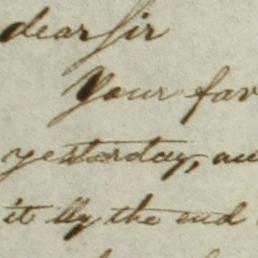 dear Sir
Your fav
yesterday, an
it by the end